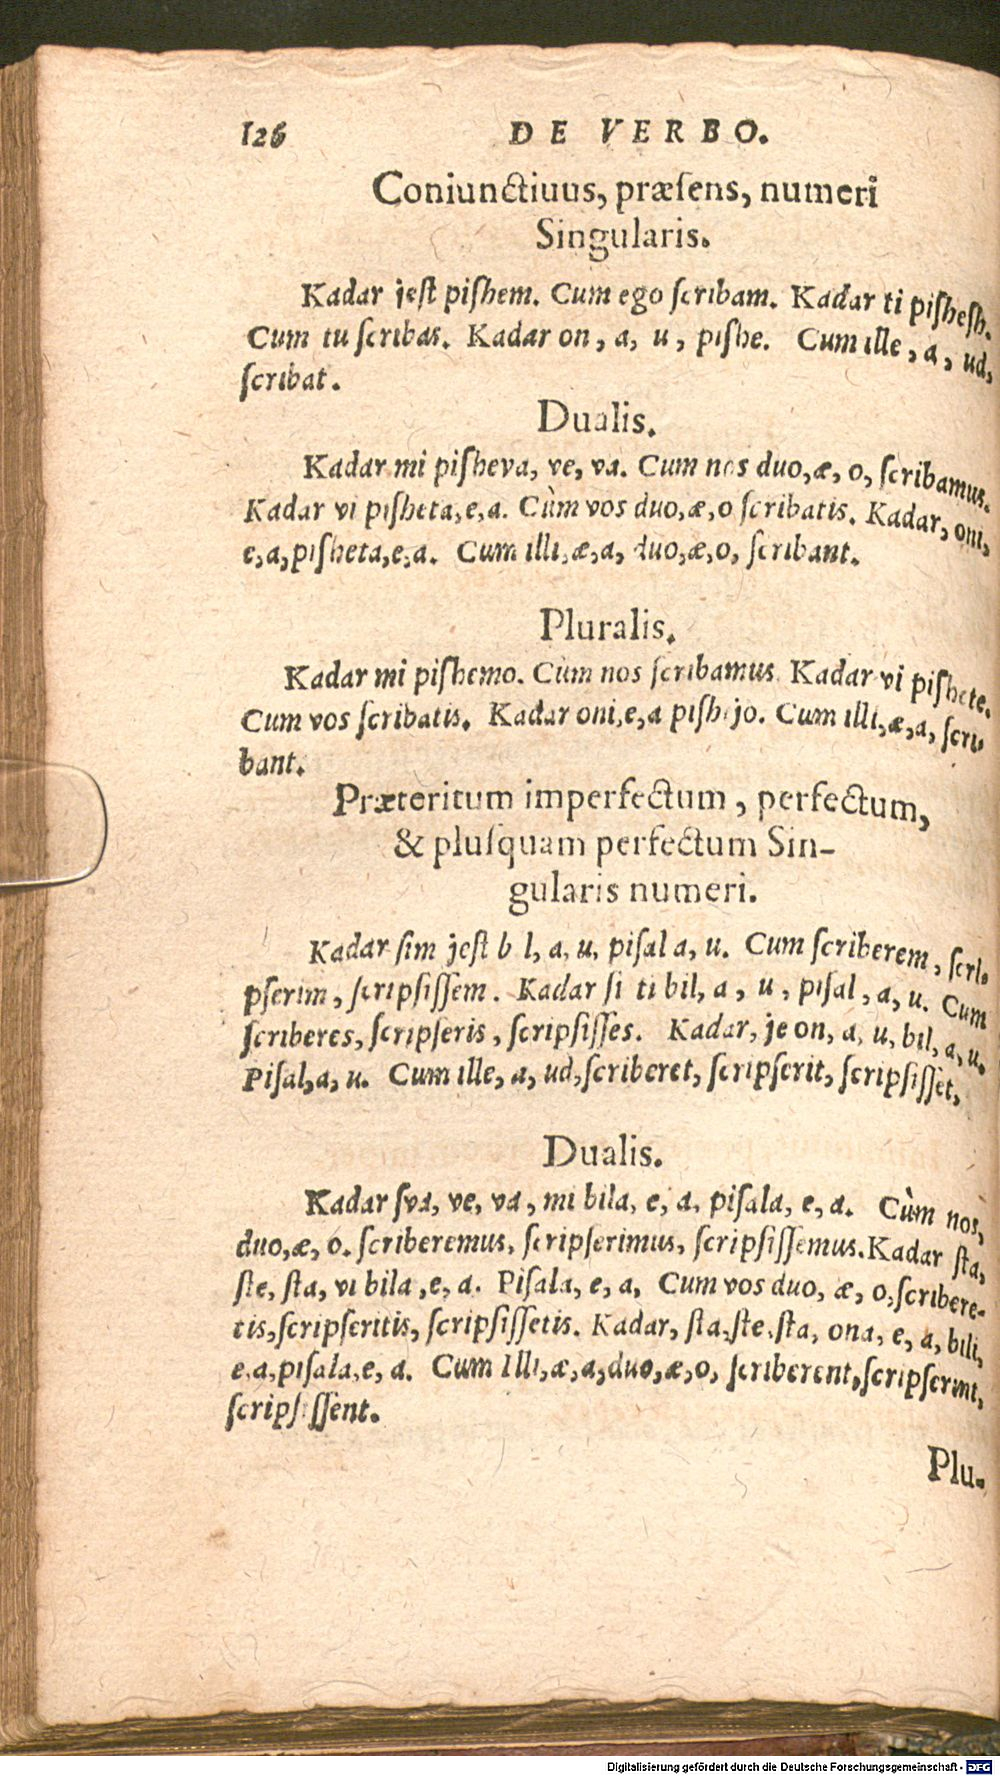 126 DE VERBO.
Coniunctiuus, præſens, numeri
Singularis.
Kadar jeſt piſhem. Cum ego ſcribam. Kadar ti piſheſh.
Cum tu ſcribas. Kadar on, a, u, piſhe. Cum ille, a, ud,
ſcribat.
Dualis.
Kadar mi piſheva, ve, va. Cum nos duo, æ, o, ſcribamus.
Kadar vi piſheta, e, a. Cùm vos duo, æ, o ſcribatis. Kadar, oni,
e, a, piſheta, e, a. Cum illi, æ, a, duo, æ, o, ſcribant.
Pluralis.
Kadar mi piſhemo. Cùm nos ſcribamus. Kadar vi piſhete.
Cum vos ſcribatis. Kadar oni, e, a piſhejo. Cum illi, æ, a, ſcri-
bant.
Præteritum imperfectum, perfectum,
& pluſquam perfectum Sin-
gularis numeri.
Kadar ſim jeſt b l, a, u, piſal a, u. Cum ſcriberem, ſcri-
pſerim, ſcripſiſſem. Kadar ſi ti bil, a, u, piſal, a, u. Cum
ſcriberes, ſcripſeris, ſcripſiſſes. Kadar, je on, a, u, bil, a, u.
Piſal, a, u. Cum ille, a, ud, ſcriberet, ſcripſerit, ſcripſiſſet,
Dualis.
Kadar ſva, ve, va, mi bila, e, a, piſala, e, a. Cùm nos,
duo, æ, o. ſcriberemus, ſcripſerimus, ſcripſiſſemus. Kadar ſta,
ſte, ſta, vi bila, e, a. Piſala, e, a, Cum vos duo, æ, o, ſcribere-
tis, ſcripſeritis, ſcripſiſſetis. Kadar, ſta, ſte, ſta, ona, e, a, bili,
e, a, piſala, e, a. Cum Illi, æ, a, duo, æ, o, ſcriberent, ſcripſerint,
ſcripſiſſent.
Plu-
Digitalisierung gefördert durch die Deutsche Forschungsgemeinschaft - DFG